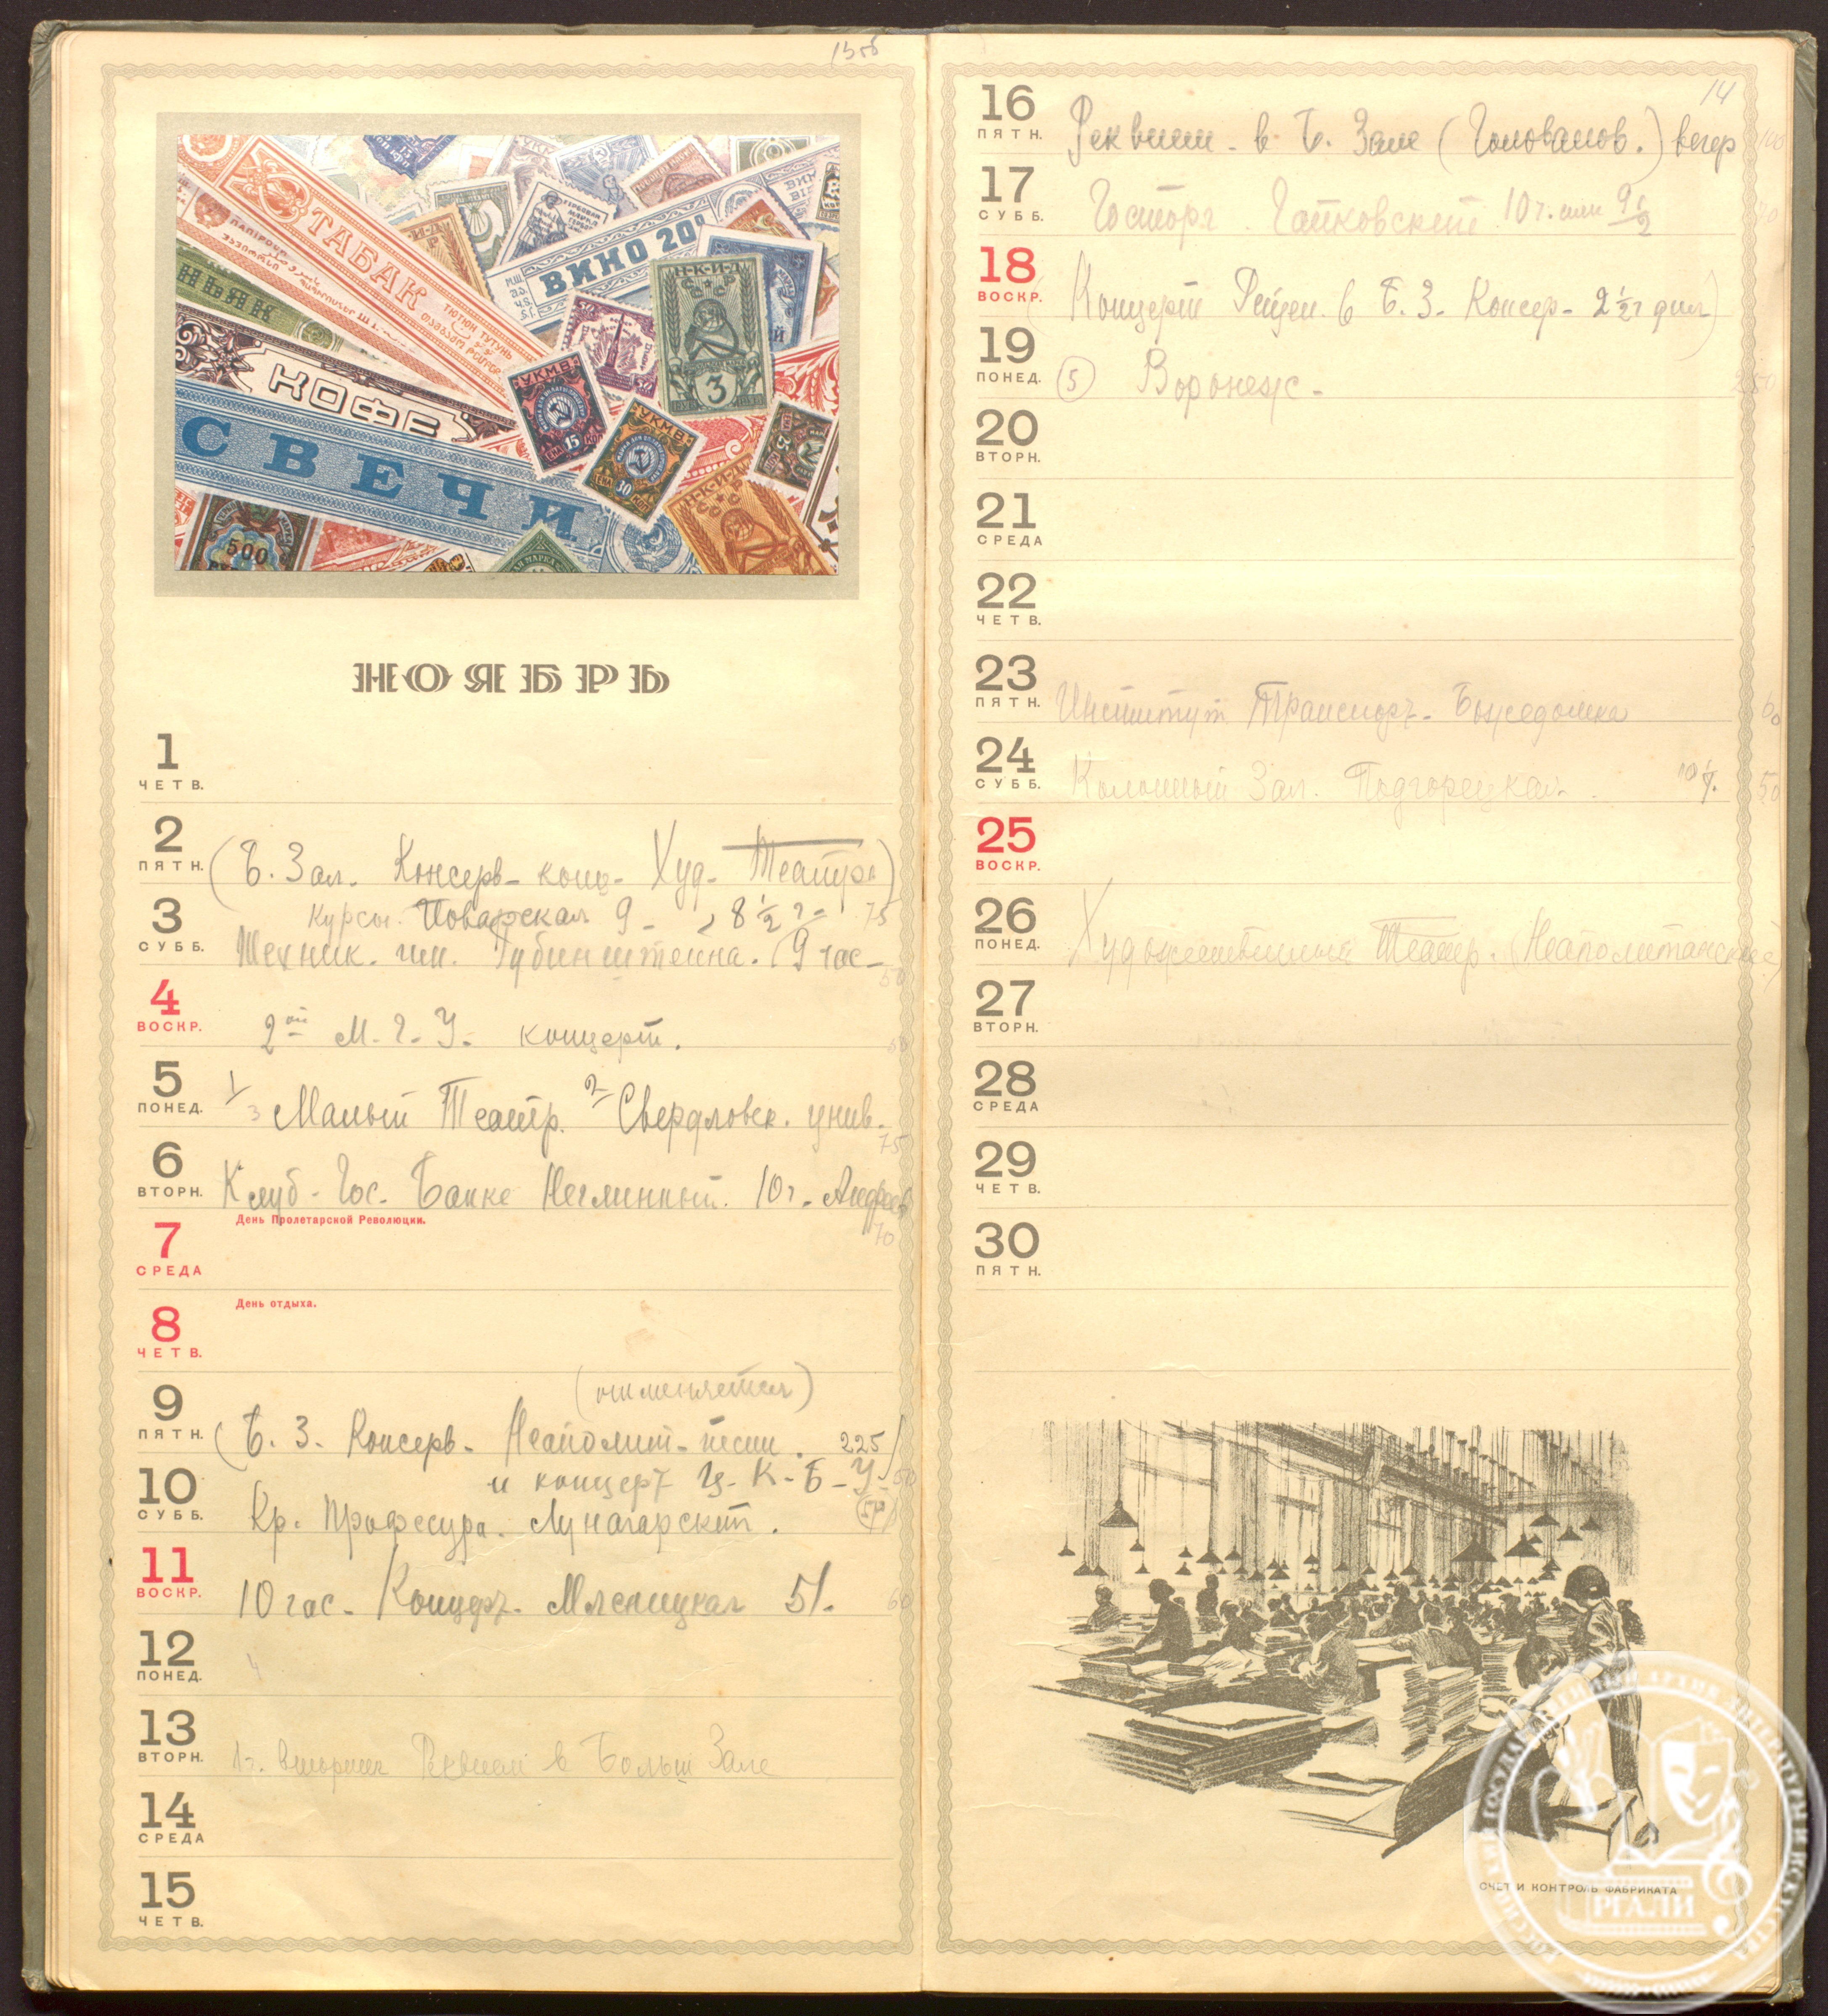 13об
ТАБАК
ТЮТЮН ТУТУНЬ
ПАПІРОСИ
НЬЯК
КОФЕ
СВЕЧИ
500
ВИНО 20°
ГЕРБОВАЯ МАРКА
Н-К-И-Д
3
УКМВ
ЦЕНА 15 КОП
УКМВ
ЦЕНА 30 КОП
Н-К-И-Д
25
НОЯБРЬ
1 ЧЕТВ.
2 ПЯТН. (Б. Зал. Консерв- конц- Худ- Театра)
Курсы. Поварская 9 - 8 1/2 ч= 75
3 СУББ. Техник. им. Рубинштейна. 9 час- 50
4 ВОСКР. 2ой М. Г. У. концерт. 50
5 ПОНЕД. 1/3 Малый Театр. 2 Свердловск. унив. 75
6 ВТОРН. Клуб- Гос. Банке Неглинный. 10 ч. Андреев 70
День Пролетарской Революции.
7 СРЕДА
День отдыха.
8 ЧЕТВ.
(отменяется)
9 ПЯТН. (Б. З. Консерв- Неаполит- песни. 225)
и концерт Ц- К- Б- У- 50
10 СУББ. Кр. Профессура. Луначарский.
11 ВОСКР. 10 час- Концерт- Мясницкая 51. 60
12 ПОНЕД. 4
13 ВТОРН. 1 ч. вторник Реквием в Больш Зале
14 СРЕДА
15 ЧЕТВ.
14
16 ПЯТН. Реквием- в Б. Зале (Голованов.) вечер 100
17 СУББ. Госторг. Чайковский 10 ч. или 9 1/2
18 ВОСКР. (Концерт Рейзен. в Б. З. Консер- 2 1/2 ч дня)
19 ПОНЕД. 5 Воронеж- 250
20 ВТОРН.
21 СРЕДА
22 ЧЕТВ.
23 ПЯТН. Институт Транспорт- Божедомка 60
24 СУББ. Колонный Зал. Подгорецкая. 10 ч. 50
25 ВОСКР.
26 ПОНЕД. Художественный Театр. (Неаполитанские)
27 ВТОРН.
28 СРЕДА
29 ЧЕТВ.
30 ПЯТН.
СЧЕТ И КОНТРОЛЬ ФАБРИКАТА
РОССИЙСКИЙ ГОСУДАРСТВЕННЫЙ АРХИВ ЛИТЕРАТУРЫ И ИСКУССТВА
РГАЛИ